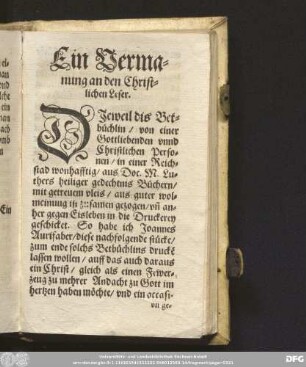 Ein Verma-
nung an den Christ-
lichen Leser.
DJeweil dis Bet-
büchlin / von einer
Gottliebenden vnnd
Christlichen Perso-
nen / in einer Reich-
stad wonhafftig / aus Doc. M. Lu-
thers heiliger gedechtnis Büchern /
mit getrewen vleis / aus guter wol-
meinung in zusamen gezogen / vñ an-
her gegen Eisleben in die Druckerey
geschicket. So habe ich Joannes
Aurifaber / diese nachfolgende stücke /
zum ende solchs Betbüchlins druckē
lassen wollen / auff das auch daraus
ein Christ / gleich als einen Fewer-
zeug zu mehrer Andacht zu Gott im
hertzen haben möchte / vnd ein occasi-
on ge-
Ein
DFG